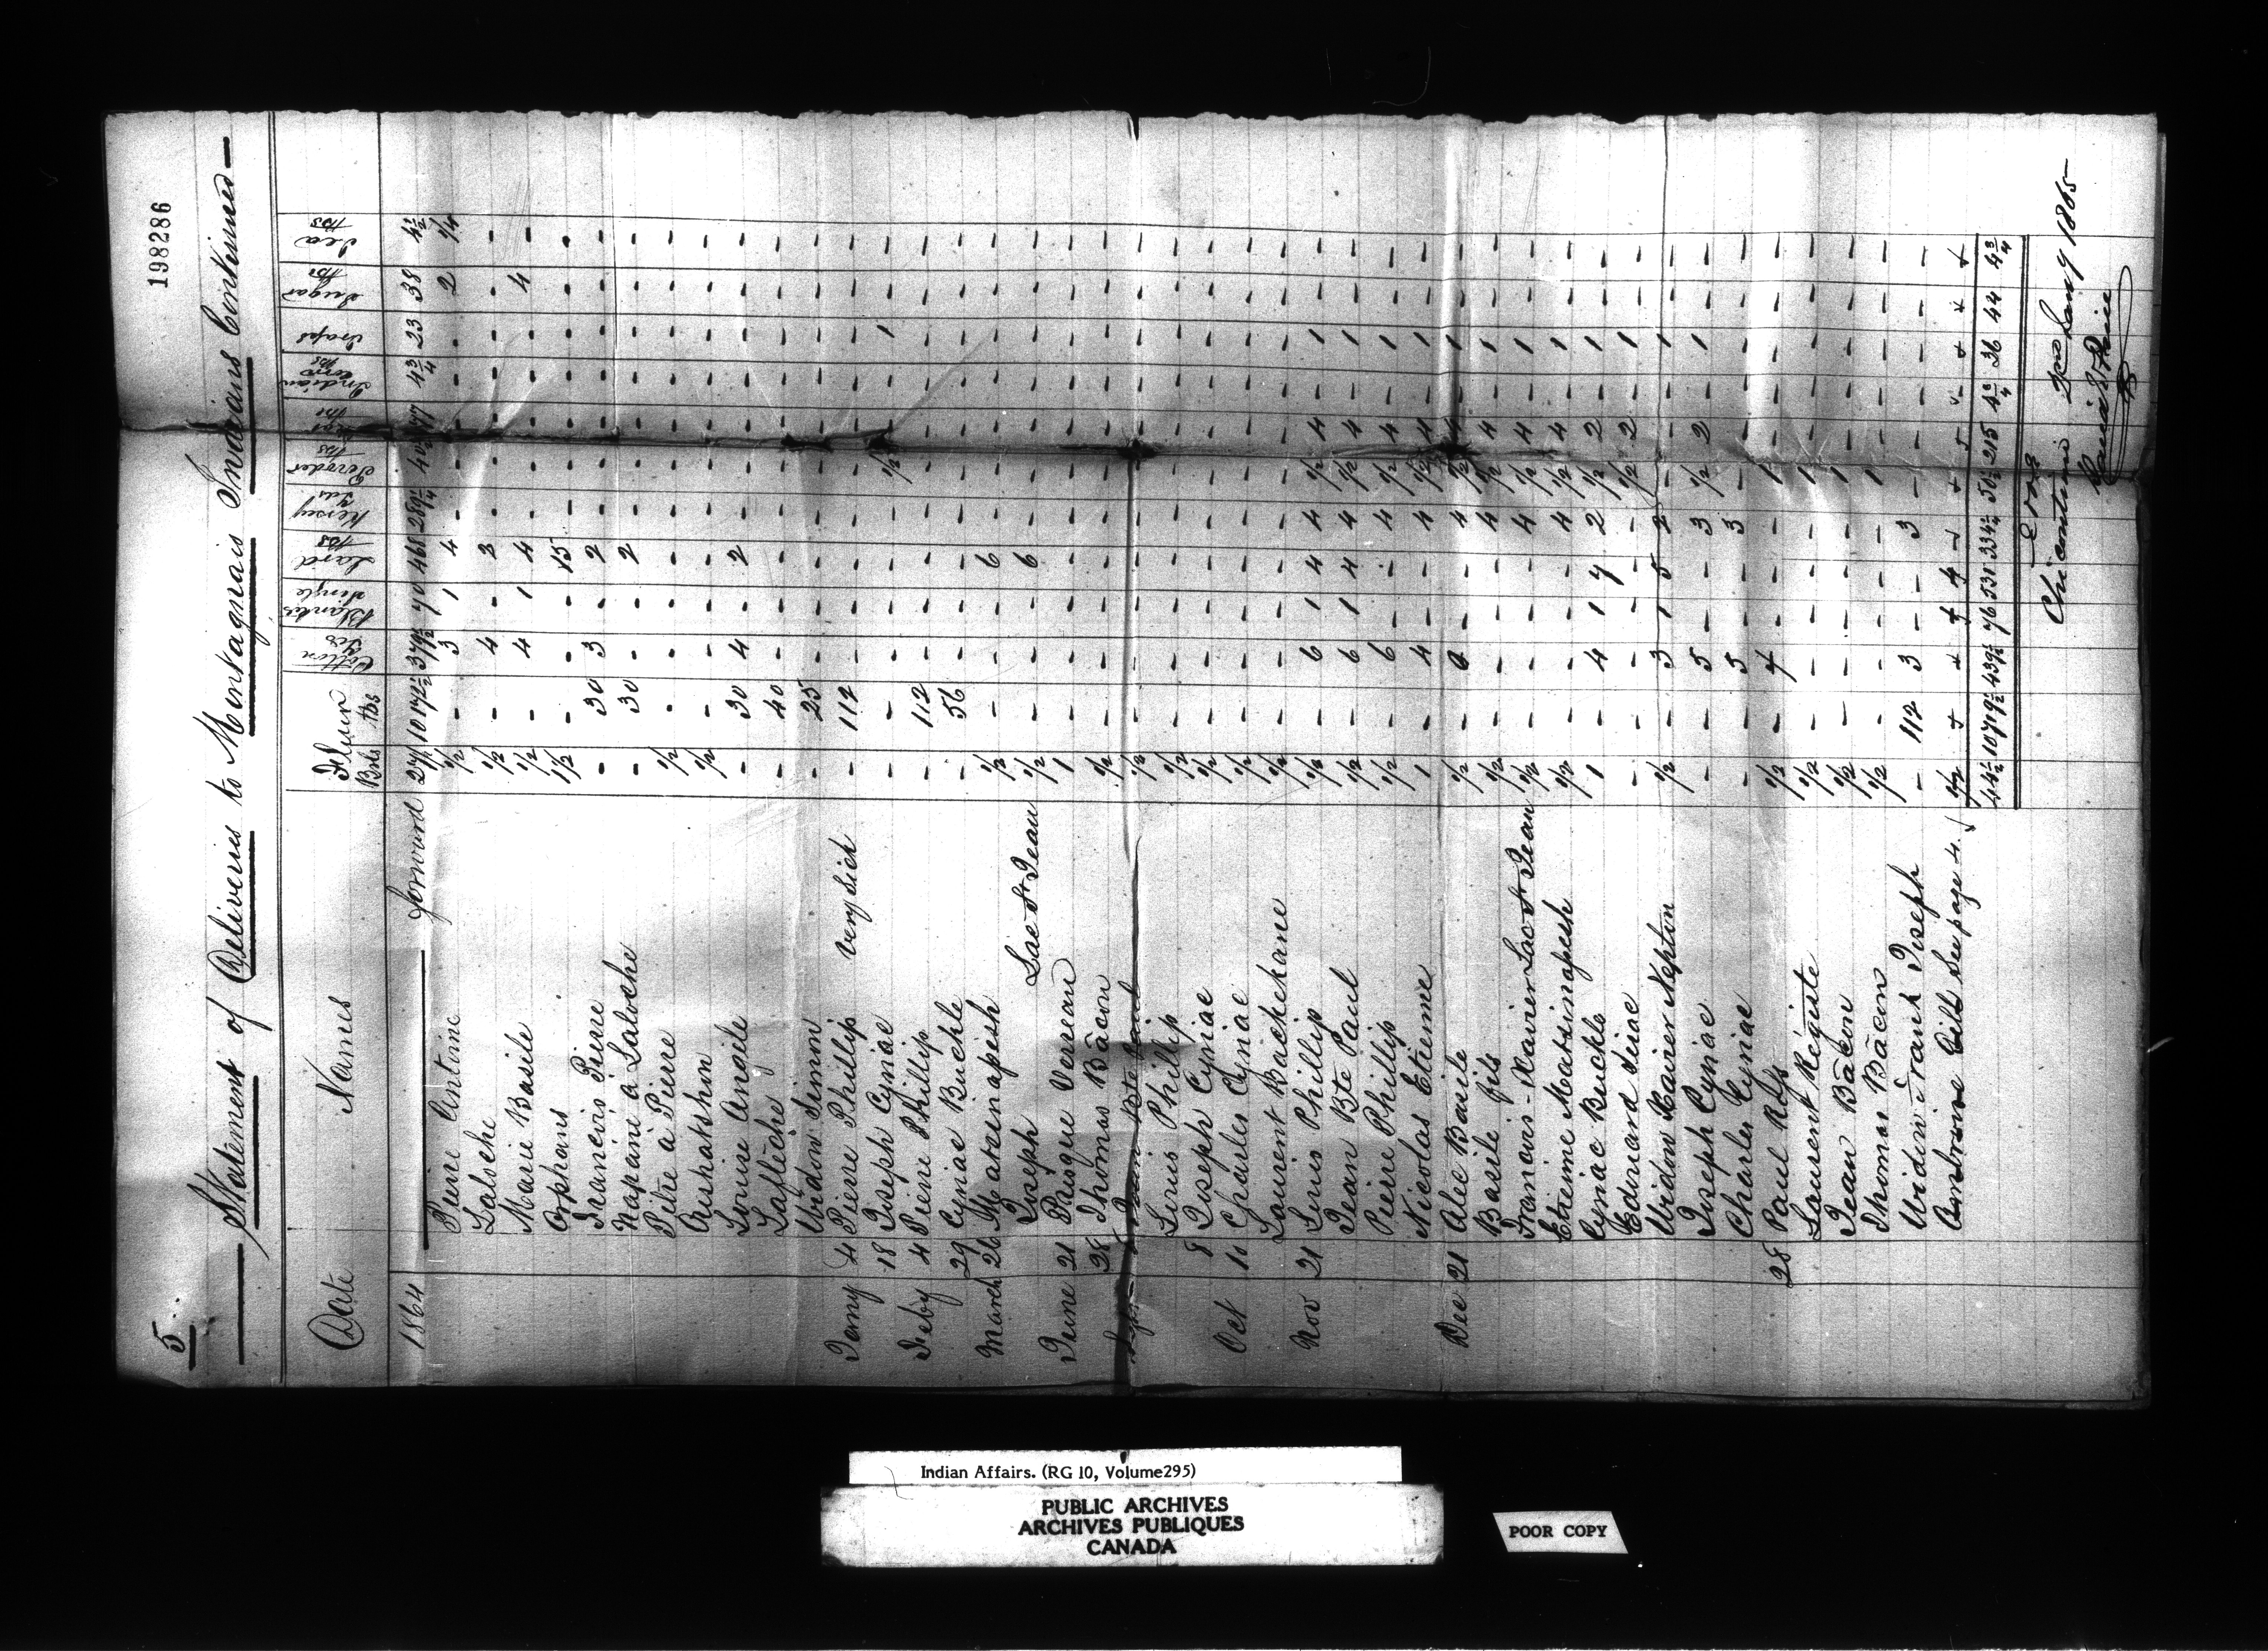 5.
198286
Statement of Deliveries to Montagnais Indians Continued
Date Names Flour Brls lbs Cotton Yds Blankets Single Lard lbs Kersey Yds Powder lbs Shot lbs Indian Corn Traps Sugar lbs Tea lbs
1864 forward 27½ 1017½ 379½ 70 468 289¼ 40½ 43/4 23 38 4½
Pierre Antoine ½ - 3 1 4 - - - - - 2 1/4
Laloche ½ - 4 - 3 - - - - - - -
Marie Basile ½ - 4 1 4 - - - - - 4 -
Orphans 1½ - - - 15 - - - - - - -
Francois Pierre - 30 3 - 2 - - - - - - -
Napani a Laloche - 30 - - 2 - - - - - - -
Petre a Pierre ½ - - - - - - - - - - -
Aushatshin ½ - - - - - - - - - - -
Louise Angile - 30 4 - 2 - - - - - - -
Lafléche - 40 - - - - - - - - - -
Widow Simon - 25 - - - - - - - - - -
Jany 4 Pierre Phillip very sick - 112 - - - - - - - - - -
18 Joseph Cyriac - - - - - - ½ - - 1 - -
Feby 4 Pierre Phillip - 112 - - - - - - - - - -
29 Cyriac Buckle - 56 - - - - - - - - - -
March 26 Matsinapesh ½ - - - 6 - - - - - - -
Joseph Lac St Jean ½ - - - 6 - - - - - - -
June 21 Prisque Verreau 1 - - - - - - - - - - -
28 Thomas Bâcon ½ - - - - - - - - - - -
Jean Bte Paul ½ - - - - - - - - - - -
Louis Phillip ½ - - - - - - - - - - -
8 Joseph Cyriac ½ - - - - - - - - - - -
Oct 10 Charles Cyriac ½ - - - - - - - - - - -
Laurent Backchane ½ - - - - - - - - - - -
Nov 21 Louis Phillip ½ - 6 1 4 4 ½ 4 - 1 - -
Jean Bte Paul ½ - 6 1 4 4 ½ 4 - 1 - -
Pierre Phillip ½ - 6 - - 4 ½ 4 - 1 - -
Nicolas Etienne 1 - 4 - - 4 ½ 4 - 1 - -
Dec 21 Alec Basile ½ - - - 4 ½ 4 - 1 - -
Basile fils ½ - - - - 4 ½ 4 - 1 - -
Francois-Xavier Lac St Jean ½ - - - - 4 ½ 4 - 1 - -
Etienne Matsinapesh ½ - - - - 4 ½ 4 - 1 - -
Cyriac Buckle 1 - 4 1 7 2 ½ 2 - 1 - -
Edouard Siriac - - - - - - ½ 2 - 1 - -
Widow Xavier Nepton ½ - 3 1 5 2 - - - 1 - -
Joseph Cyriac - - 5 - - 3 ½ 2 - 1 - -
Charles Cyriac - - 5 - - 3 - - - - - -
28 Paul Ross ½ - - - - 1 - - - - -
Laurent Régiste ½ - - - - - 1 - - - - -
Jean Bâcon ½ - - - - - 1 - - - - -
Thomas Bâcon ½ - - - - - 1 - - - - -
Widow Frank Joseph - 112 3 - - 3 - - - - - -
Ambroise Gill See page 4.
44½ 1079½ 439½ 76 531 334¼ 50½ 215 4¾ 36 44 4¾
E & O E
Chicoutimi Jany 1865
David E Price
Indian Affairs. (RG 10, Volume295)
PUBLIC ARCHIVES
ARCHIVES PUBLIQUES
CANADA
POOR COPY